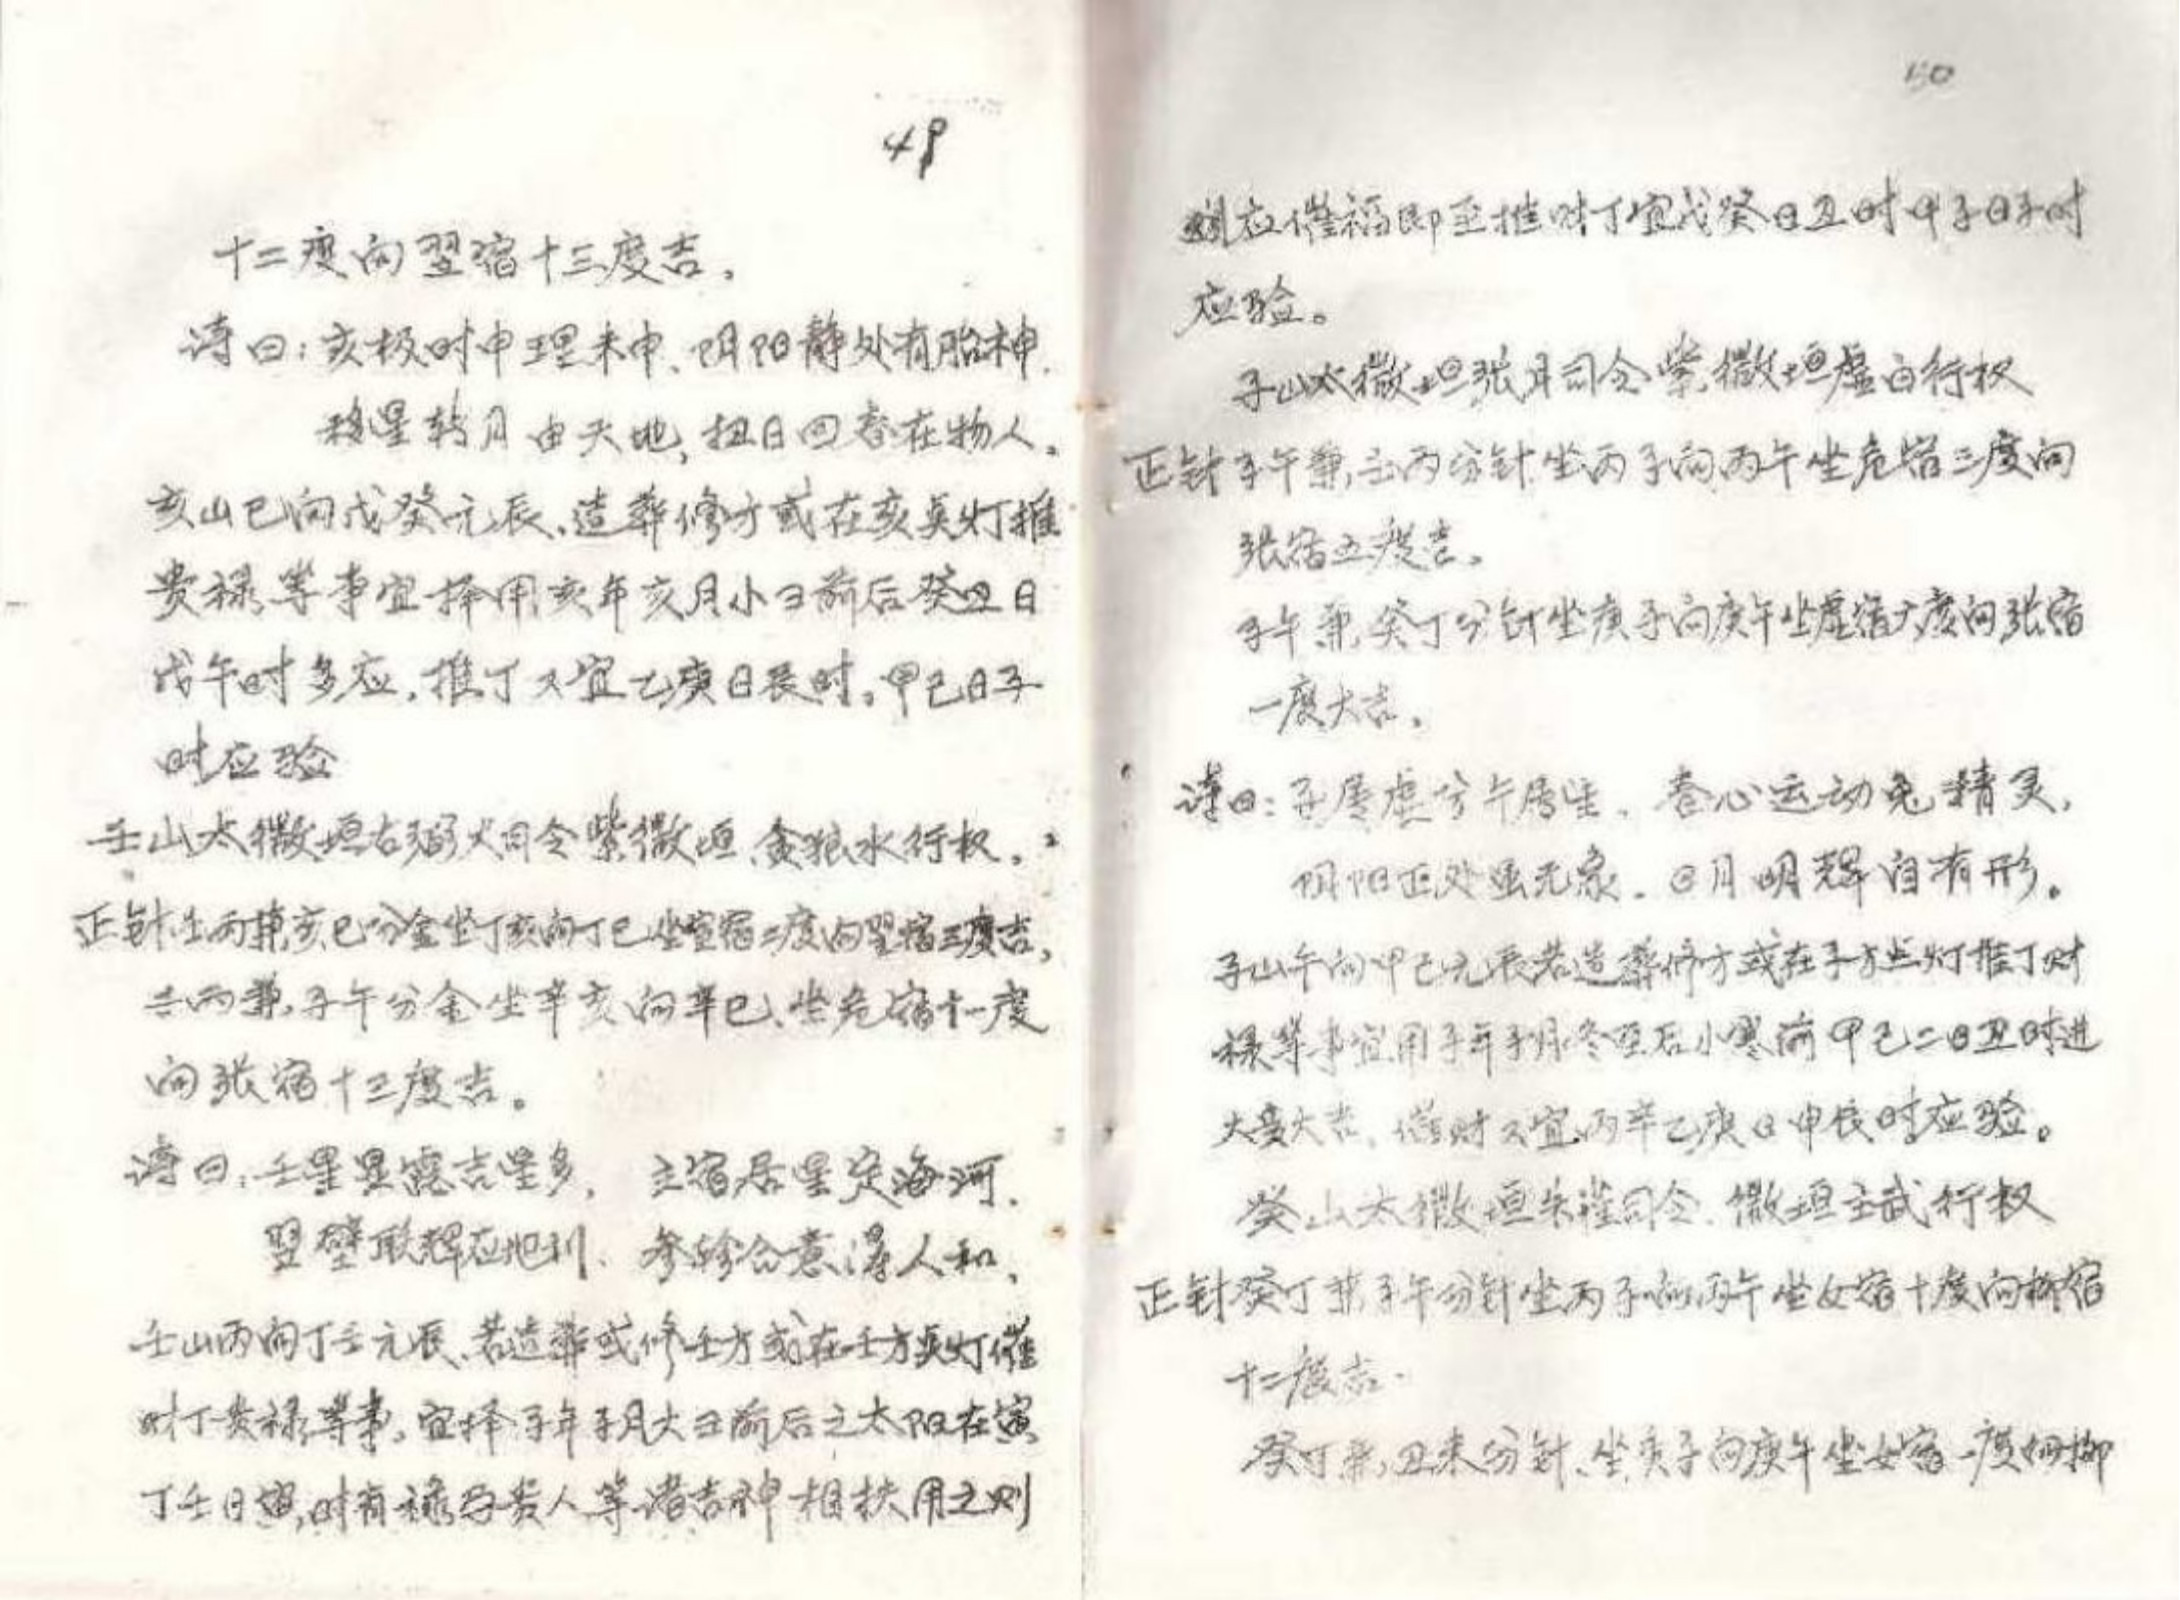 49
十二度向翌宿十三度吉。
诗曰：亥极时中理未申、阴阳静处有胎神.
移星转月由天地，扭日回春在物人。
亥山巳向戊癸元辰、造葬修方或在亥点灯推
贵禄等事宜择用亥年亥月小彐前后癸丑日
戊午时多应，推丁又宜乙庚日辰时。甲己日子
时应验
壬山太微垣右弼火司令紫微垣、贪狼水行权。
正针壬丙兼亥巳分金坐丁亥向丁巳坐室宿二度向翌宿三度吉，
壬丙兼子午分金坐辛亥向辛巳、坐危宿十一度
向张宿十三度吉。
诗曰：壬星显露吉星多， 主宿居星定海河.
翌壁联辉应地利、 参轸合意得人和、
壬山丙向丁壬元辰、若造葬或修壬方或在壬方点灯催
财丁贵禄等事。宜择子年子月大彐前后之太阳在寅
丁壬日寅时有禄马贵人等诸吉神相扶用之则
50
应催福即至推财丁宜戊癸日丑时甲子日子时
应验。
子山太微垣张月司令紫微垣虚日行权
正针子午兼壬丙分针坐丙子向丙午坐危宿三度向
张宿五度吉。
子午兼癸丁分针坐庚子向庚午坐虚宿六度向张宿
一度大吉。
诗曰：子居虚兮午居星、 春心运动兔精灵，
阴阳正处虽无象. 日月明辉自有形。
子山午向甲己元辰若造葬修方或在子方点灯推丁财
禄等事宜用子年子月冬至后小寒前甲己二日丑时进
大吉、催财又宜丙辛乙庚日申辰时应验。
癸山太微垣朱雀司令、微垣玄武行权
正针癸丁兼子午分针坐丙子向丙午坐女宿十度向柳宿
十二度吉.
癸丁兼丑未分针、坐庚子向庚午坐女宿一度向柳